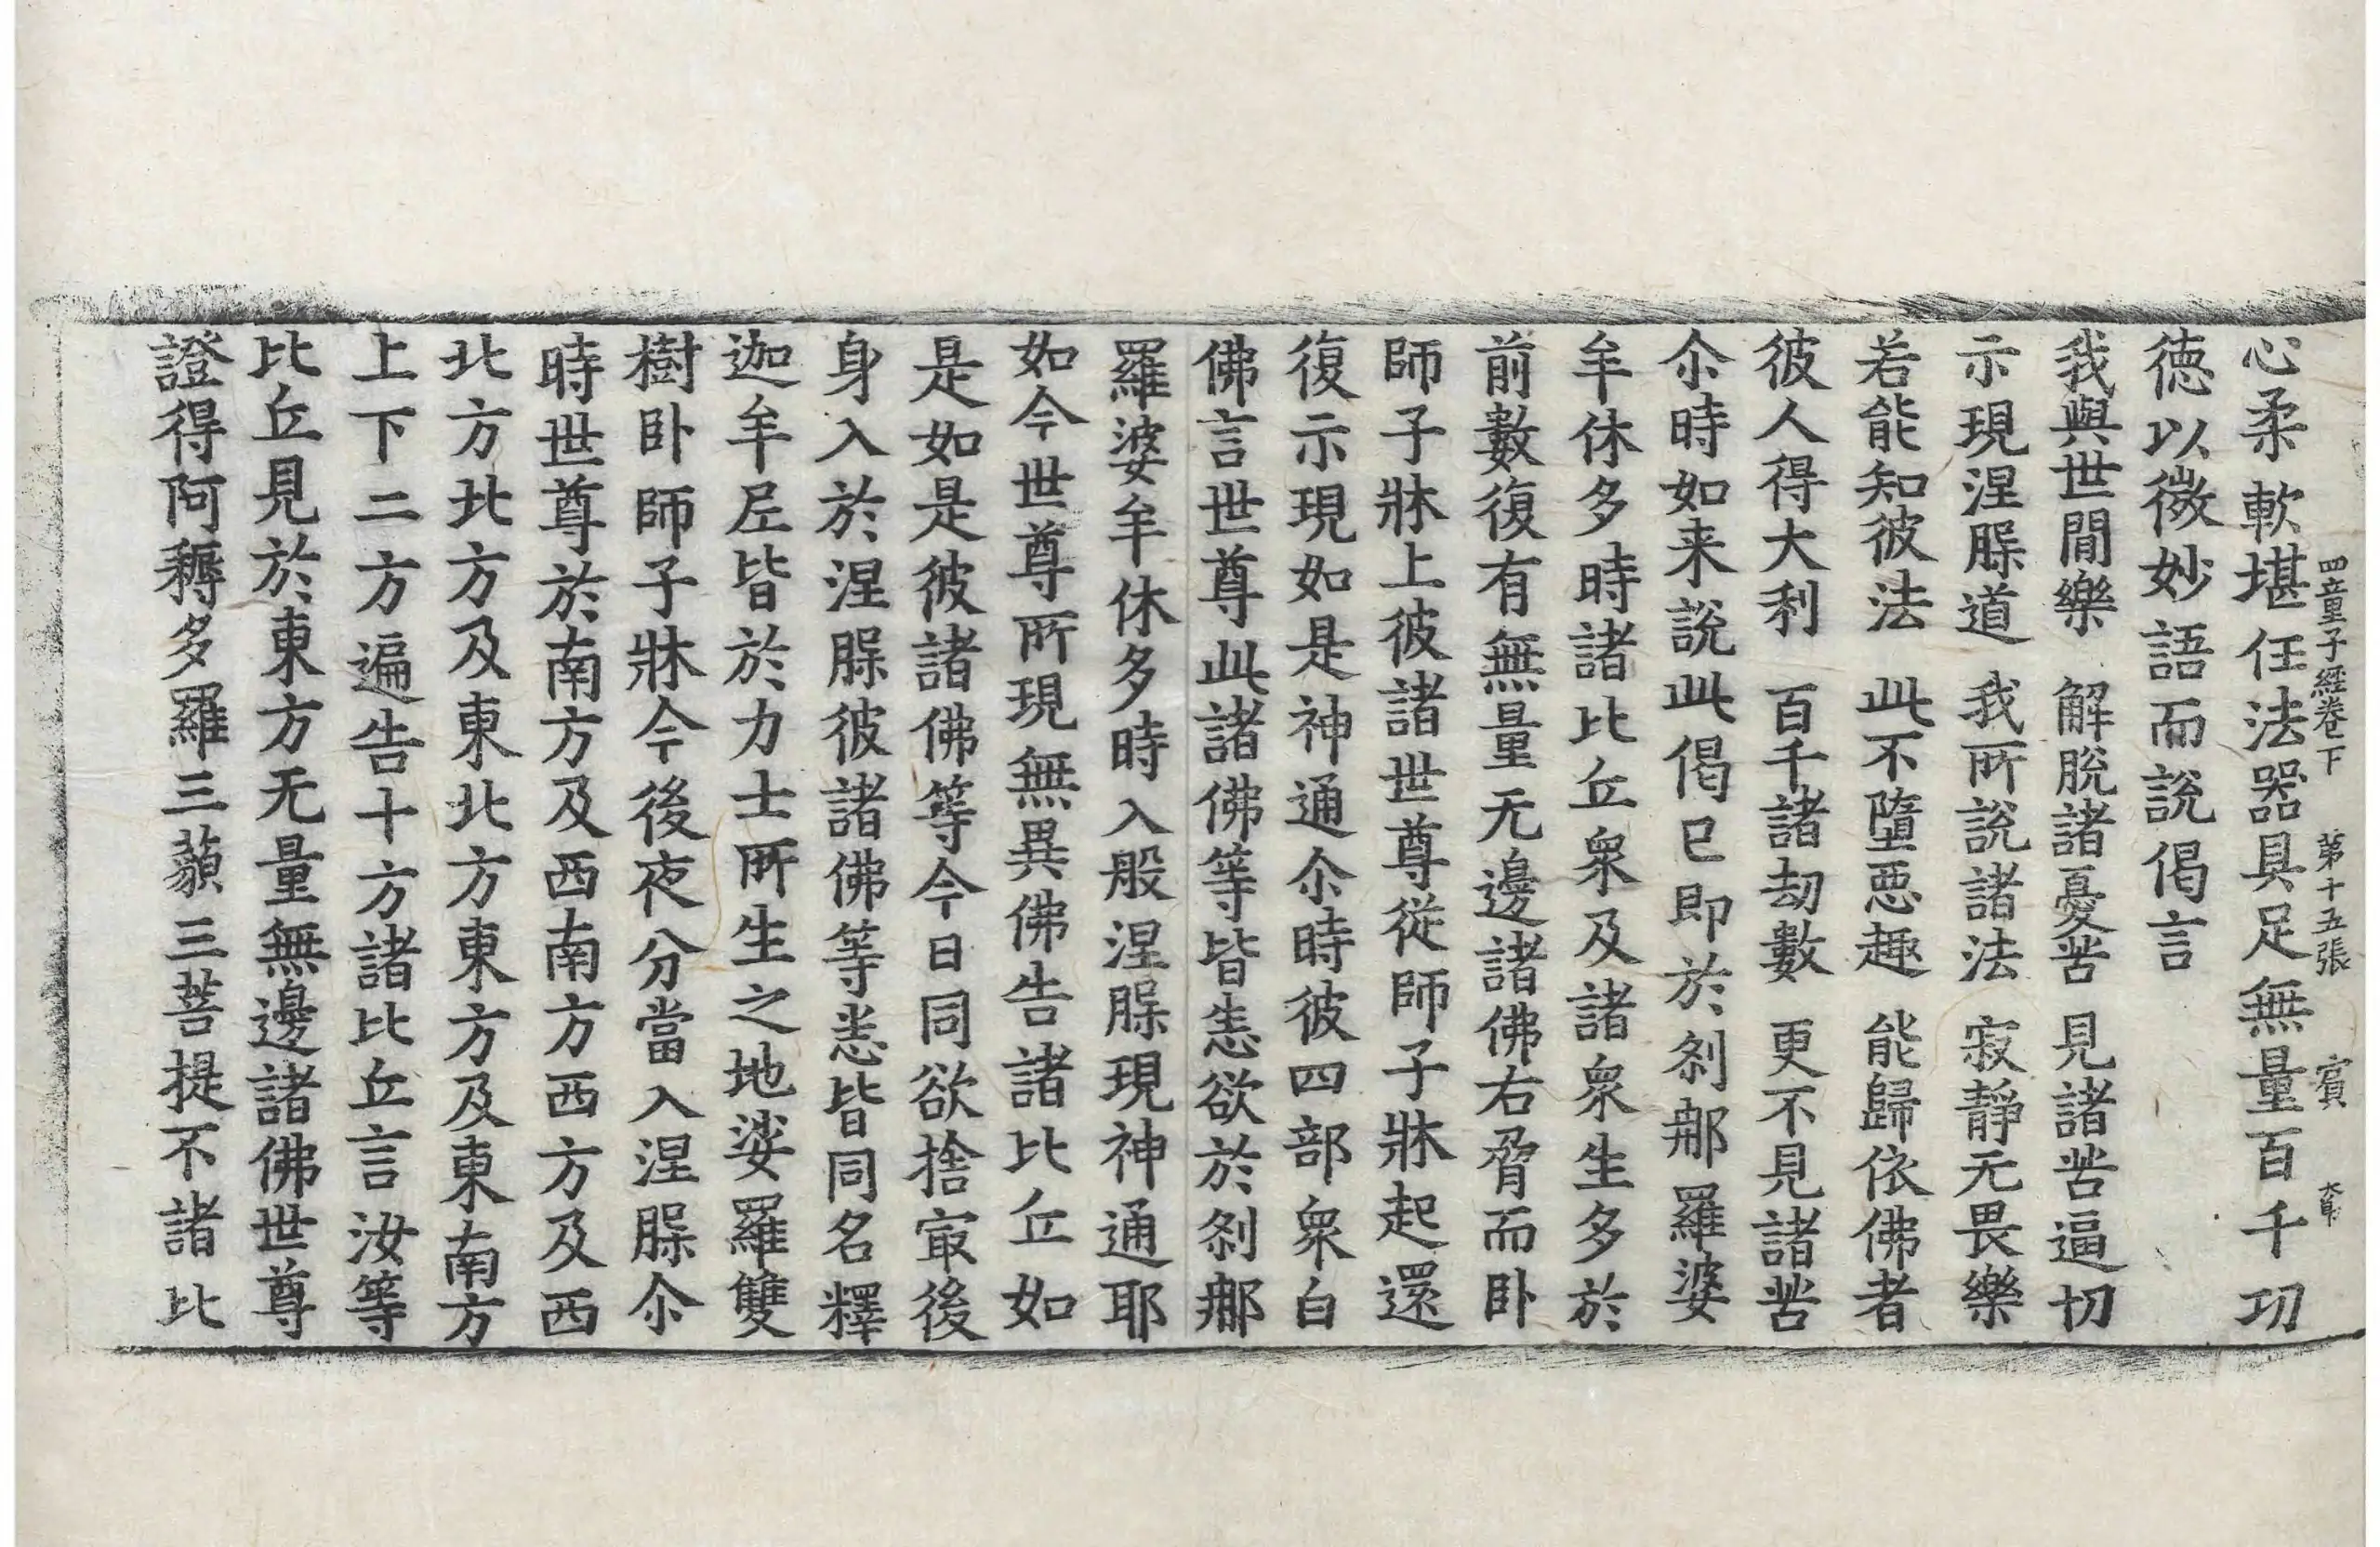 四童子経卷下　第十五張　賓
心柔軟堪任法器具足無量百千功
徳以微妙語而說偈言
我與世間樂　解脫諸憂苦　見諸苦逼切
示現涅槃道　我所說諸法　寂靜无畏樂
若能知彼法　此不墮惡趣　能歸依佛者
彼人得大利　百千諸劫數　更不見諸苦
尒時如来說此偈已即於剎那羅婆
牟休多時諸比丘衆及諸衆生多於
前數復有無量无邊諸佛右脅而卧
師子牀上彼諸世尊從師子牀起還
復示現如是神通尒時彼四部衆白
佛言世尊此諸佛等皆悉欲於剎那
羅婆牟休多時入般涅槃現神通耶
如今世尊所現無異佛告諸比丘如
是如是彼諸佛等今日同欲捨寂後
身入於涅槃彼諸佛等悉皆同名釋
迦牟尼皆於力士所生之地娑羅雙
樹卧師子牀今後夜分當入涅槃尒
時世尊於南方及西南方西方及西
北方北方及東北方東方及東南方
上下二方遍告十方諸比丘言汝等
比丘見於東方无量無邊諸佛世尊
證得阿耨多羅三藐三菩提不諸比